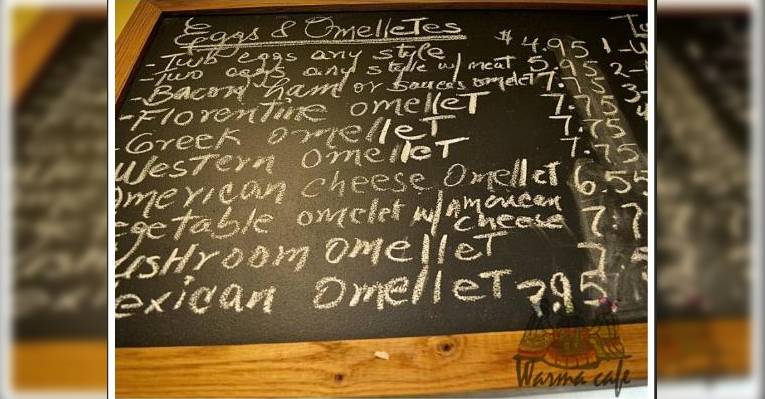 Eggs & OmelleTes
-Two eggs any style $4.95
-Two eggs any style w/ meat 5.95
-Bacon ham or omelet 7.75
-Florentine omelleT 7.75
Greek omelleT 7.75
WesTern omelleT 7.75
American cheese Omellet 6.55
egetable omelet w/ American cheese 7.7
usHroom omelleT 7.
exican omelleT 7.95
1-
2-
3-
Warma cafe